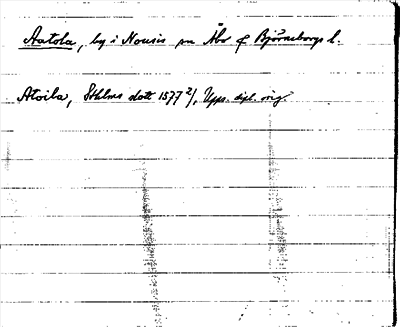 Aatola, by i Nousis sn Åbo o Björneborgs l.
Atoila, Sthlms slott 1577 2/1, Upps. dipl. orig.